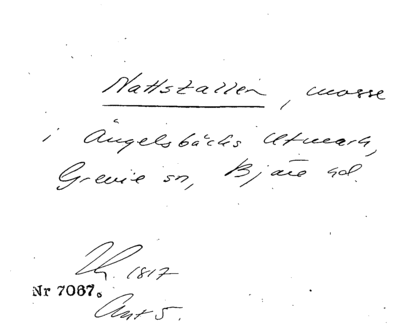 Nattstallen, mosse
i Ängelsbäcks Utmark,
Grevie sn, Bjäre hd.
1817
Nr 7067.
Ant 5.